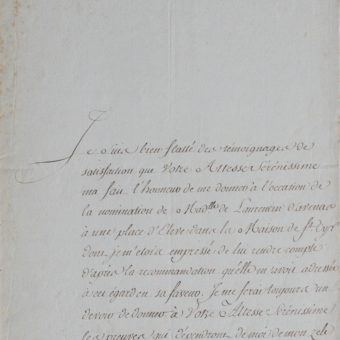 Je suis bien flatté des témoignages de
satisfaction que Votre Altesse Sérénissime
m'a fait l'honneur de me donner à l'occasion de
la nomination de Mad.lle de Laurencin d'avenas
à une place d'Eleve dans la Maison de St. Cyr
dont je m'etois empressé de lui rendre compte
d'après la recommandation qu'elle m'avoit adressée
à cet égard en sa faveur. Je me ferai toujours un
devoir de donner à Votre Altesse Sérénissime
les preuves qui dépendront de moi de mon zele